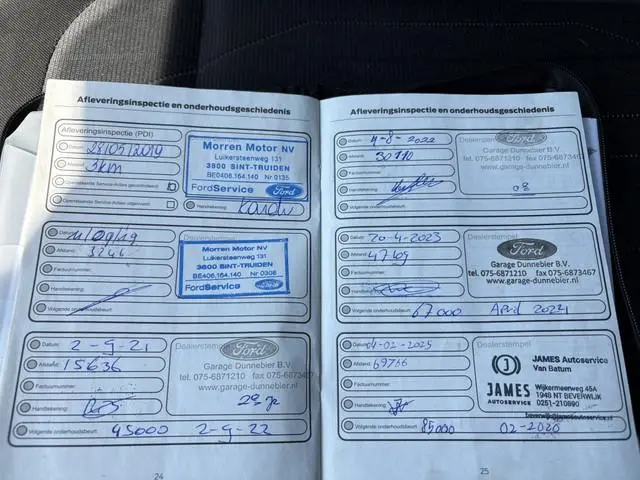 Afleveringsinspectie en onderhoudsgeschiedenis
Afleveringsinspectie (PDI)
Datum: 28/05/2019
Afstand: 3km
Morren Motor NV
Luikersteenweg 131
3800 SINT-TRUIDEN
BE0406.164.140 Nr 0135
FordService Ford
Handtekening:
Datum: 11/09/19
Afstand: 3246
Factuurnummer:
Handtekening:
Volgende onderhoudsbeurt:
Morren Motor NV
Luikersteenweg 131
3800 SINT-TRUIDEN
BE0406.164.140 Nr 0308
FordService Ford
Datum: 2-9-21
Afstand: 15636
Factuurnummer:
Handtekening:
Volgende onderhoudsbeurt: 45000 2-9-22
Dealerstempel
Ford
Garage Dunnebier B.V.
tel. 075-6871210 fax 075-6873467
www.garage-dunnebier.nl
24
Afleveringsinspectie en onderhoudsgeschiedenis
Datum: 4-8-2022
Afstand: 30710
Factuurnummer:
Handtekening:
Volgende onderhoudsbeurt:
Ford
Garage Dunnebier B.V.
tel. 075-6871210 fax 075-6873467
www.garage-dunnebier.nl
Datum: 20-4-2023
Afstand: 47169
Factuurnummer:
Handtekening:
Volgende onderhoudsbeurt: 67000 April 2024
Dealerstempel
Ford
Garage Dunnebier B.V.
tel. 075-6871210 fax 075-6873467
www.garage-dunnebier.nl
Datum: 4-02-2025
Afstand: 69766
Factuurnummer:
Handtekening:
Volgende onderhoudsbeurt: 85000 02-2020
Dealerstempel
JAMES AUTOSERVICE
JAMES Autoservice
Van Batum
Wijkermeerweg 45A
1948 NT BEVERWIJK
0251-210890
beverwijk@jamesautoservice.nl
25